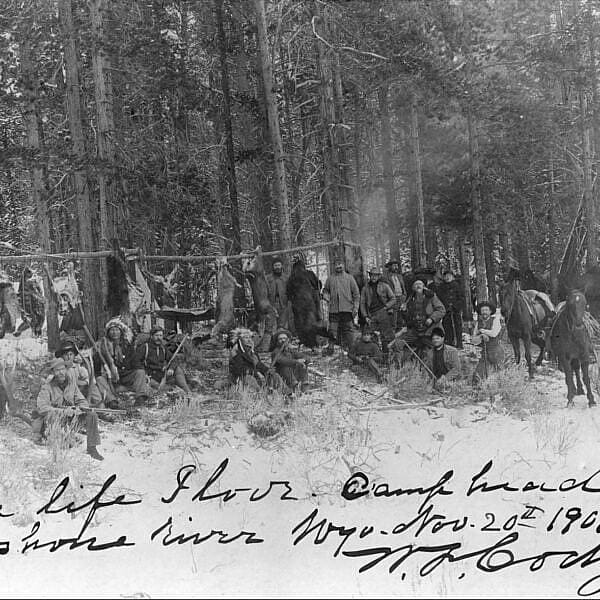 life Floor. Camp head
shone river Wyo. Nov. 20th 190
W. F. Cody